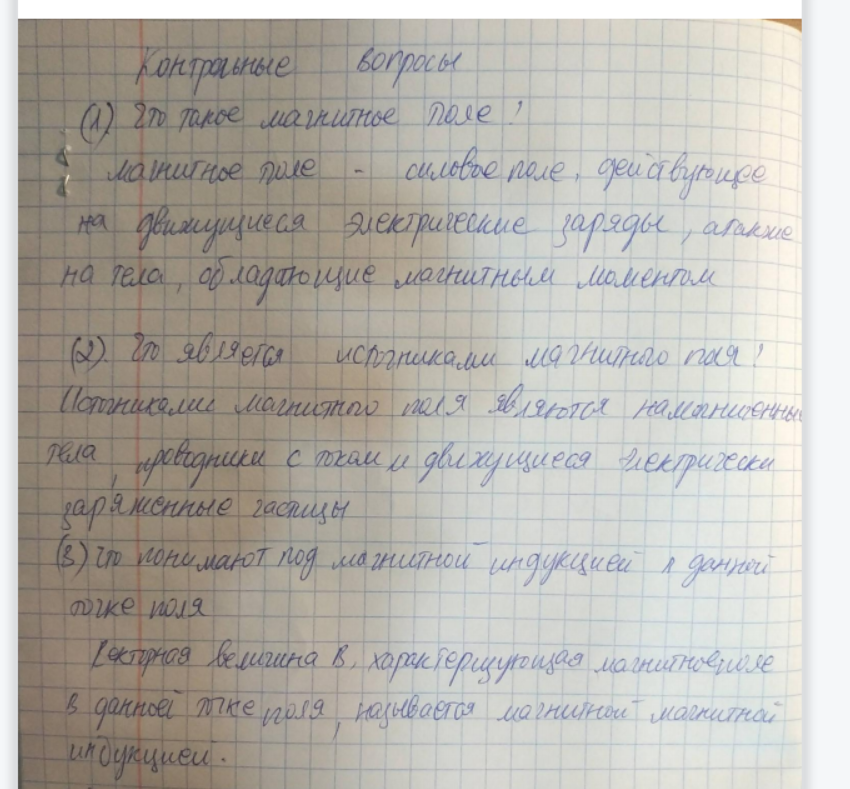 Контрольные вопросы
(1) Что такое магнитное поле?
магнитное поле - силовое поле, действующее
на движущиеся электрические заряды, а также
на тела, обладающие магнитным моментом
(2). Что является источниками магнитного поля?
Источниками магнитного поля являются намагниченные
тела, проводники с током и движущиеся электрически
заряженные частицы
(3) Что понимают под магнитной индукцией в данной
точке поля
Векторная величина В, характеризующая магнитное поле
в данной точке поля, называется магнитной магнитной
индукцией.